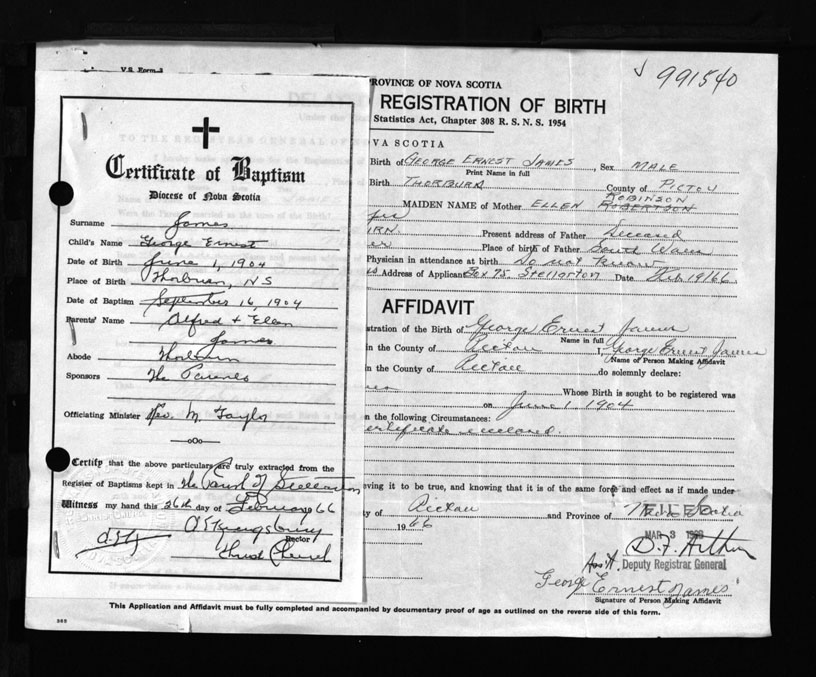 V.S. Form 3
991540
Certificate of Baptism
Diocese of Nova Scotia
Surname James
Child's Name George Ernest
Date of Birth June 1, 1904
Place of Birth Thorburn, NS
Date of Baptism September 16, 1904
Parents' Name Alfred & Ellen
James
Abode Thorburn
Sponsors The Parents
Officiating Minister Rev. M. Taylor
oOo
Certify that the above particulars are truly extracted from the
Register of Baptisms kept in The Parish of Stellarton
Witness my hand this 26th day of February 66
Rector
Christ Church
ROVINCE OF NOVA SCOTIA
REGISTRATION OF BIRTH
Statistics Act, Chapter 308 R. S. N. S. 1954
VA SCOTIA
Birth of GEORGE ERNEST JAMES, Sex MALE
Print Name in full
Birth THORBURN County of PICTOU
ROBINSON
MAIDEN NAME of Mother ELLEN ROBERTSON
Present address of Father Deceased
Place of birth of Father South Wales
Physician in attendance at birth Do not know
Address of Applicant Box 75 Stellarton Date Feb 19/66
AFFIDAVIT
stration of the Birth of George Ernest James
Name in full
in the County of Pictou I, George Ernest James
Name of Person Making Affidavit
n the County of Pictou do solemnly declare:
Whose Birth is sought to be registered was
on June 1 1904
n the following Circumstances:
ertificate enclosed.
eving it to be true, and knowing that it is of the same force and effect as if made under
y of Pictou and Province of Nova Scotia
1966
FILED
MAR 3 1966
Ass't. Deputy Registrar General
George Ernest James
Signature of Person Making Affidavit
This Application and Affidavit must be fully completed and accompanied by documentary proof of age as outlined on the reverse side of this form.